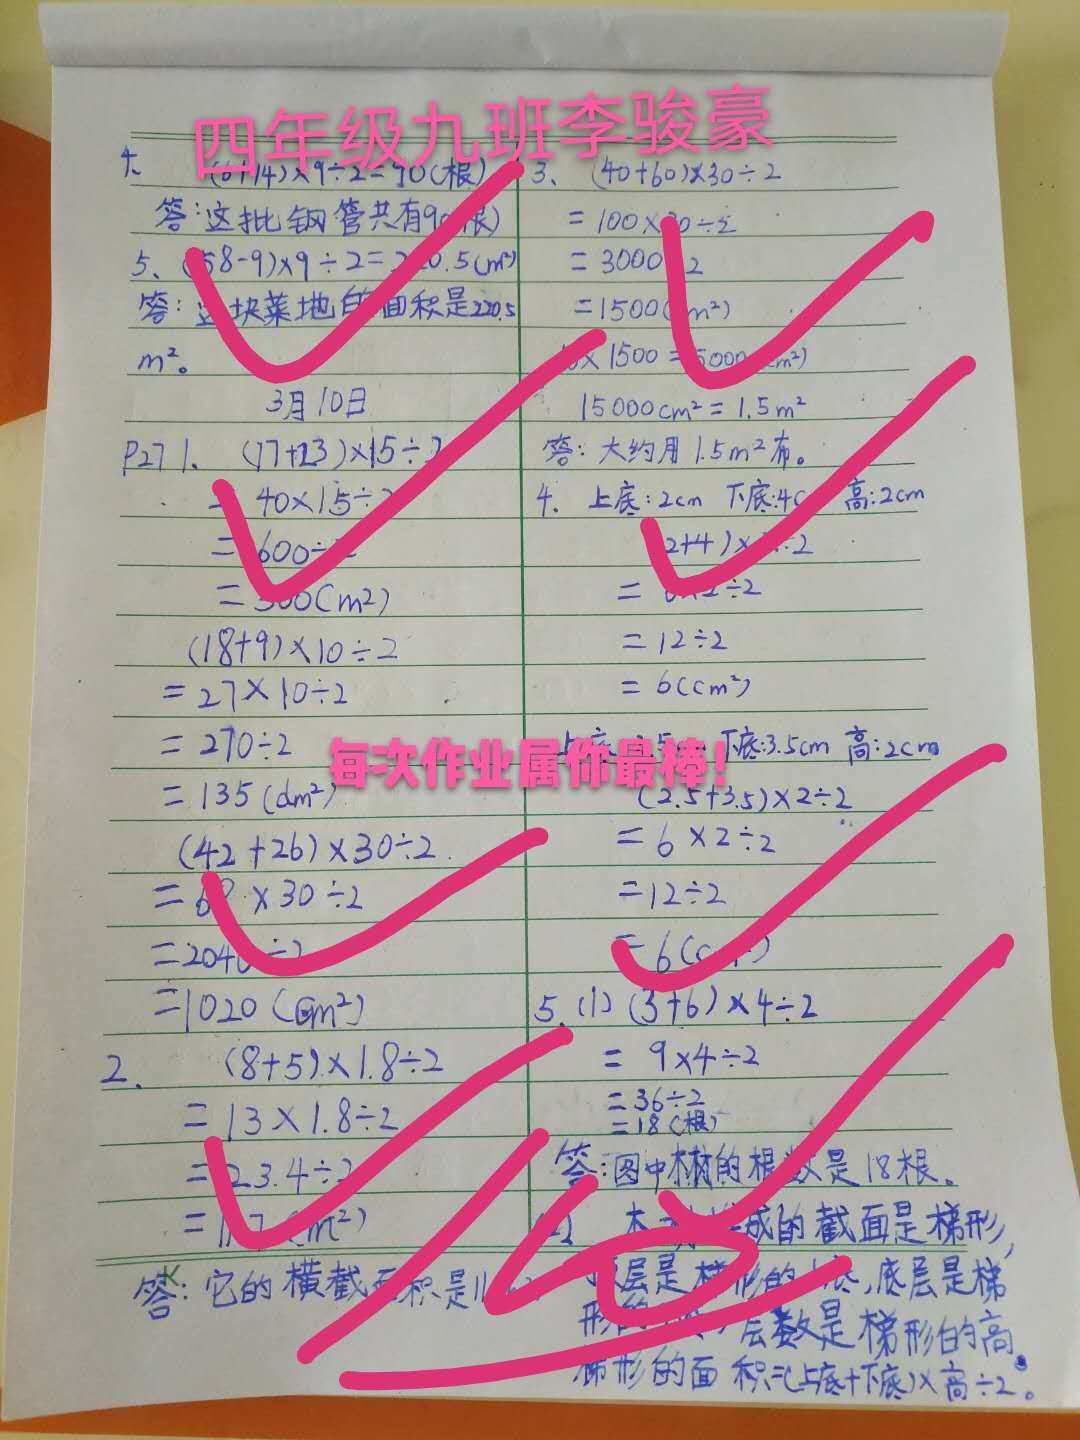 四年级九班李骏豪
4、(6+14)×9÷2=90(根)
答:这批钢管共有90(根)
5、(58-9)×9÷2=220.5(m²)
答:这块菜地的面积是220.5
m²。
3月10日
P27 1、(17+23)×15÷2
=40×15÷2
=600÷2
=300(m²)
(18+9)×10÷2
=27×10÷2
=270÷2
=135(dm²)
(42+26)×30÷2
=68×30÷2
=2040÷2
=1020(cm²)
2、(8+5)×1.8÷2
=13×1.8÷2
=23.4÷2
=11.7(m²)
答:它的横截面积是
3、(40+60)×30÷2
=100×30÷2
=3000÷2
=1500(cm²)
×1500=15000(cm²)
15000cm²=1.5m²
答:大约用1.5m²布。
4、上底:2cm 下底:4cm 高:2cm
(2+4)×2÷2
=6×2÷2
=12÷2
=6(cm²)
上底:2.5cm 下底:3.5cm 高:2cm
每次作业属你最棒!
(2.5+3.5)×2÷2
=6×2÷2
=12÷2
=6(cm²)
5、(1)(3+6)×4÷2
=9×4÷2
=36÷2
=18(根)
答:图中木材的根数是18根。
成的截面是梯形,
层是梯形的上底,底层是梯
形的 层数是梯形的高。
梯形的面积=(上底+下底)×高÷2。